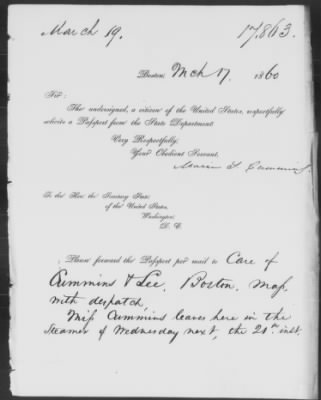 March 19. 17,863.
Boston, Mch 17, 1860
Sir:
The undersigned, a citizen of the United States, respectfully
solicits a Passport from the State Department.
Very Respectfully,
Your Obedient Servant,
Cummins.
To the Hon. the Secretary State
of the United States,
Washington,
D. C.
Please forward the Passport per mail to Care of
Cummins & Lee, Boston, Mass,
with despatch
Miss Cummins leaves here in the
steamer of Wednesday next, the 21st inst.